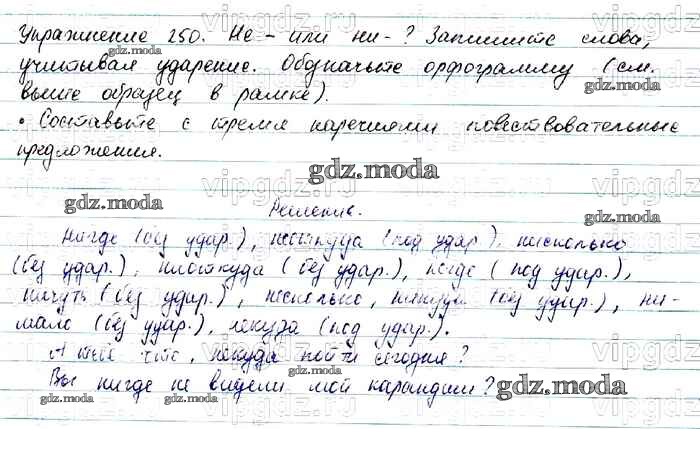 Упражнение 250. Не- или ни-? Запишите слова,
gdz.moda
учитывая ударение. Обозначьте орфограмму (см.
выше образец в рамке).
• Составьте с тремя наречиями повествовательные
предложения.
gdz.moda
Решение.
Нигде (без удар.), неоткуда (под удар.), нисколько
(без удар.), ниоткуда (без удар.), негде (под удар.),
ничуть (без удар.), несколько, никуда (без удар.), ни-
мало (без удар.), некуда (под удар.).
А тебе что, некуда пойти сегодня?
Вы нигде не видели мой карандаш?
gdz.moda